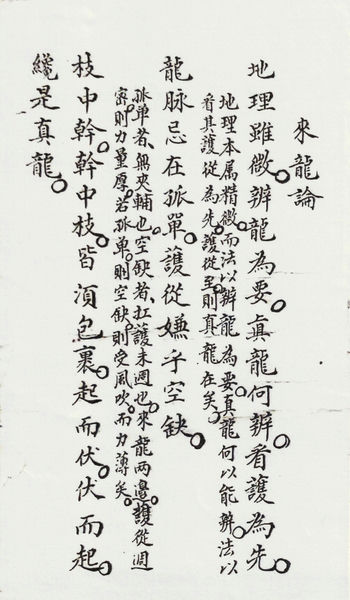 來龍論
地理雖微。辨龍為要。真龍何辨。看護為先。
地理本属精微。而法以辨龍為要。真龍何以能辨。法以
看其護從為先。護從至。則真龍在矣。
龍脉忌在孤單。護從嫌乎空缺。
孤單者。無夾輔也。空缺者。扛護未週也。來龍两邉。護從週
宻。則力量厚。若孤單。則空缺。則受風吹。而力薄矣。
枝中幹。幹中枝。皆湏包裹。起而伏。伏而起。
纔是真龍。